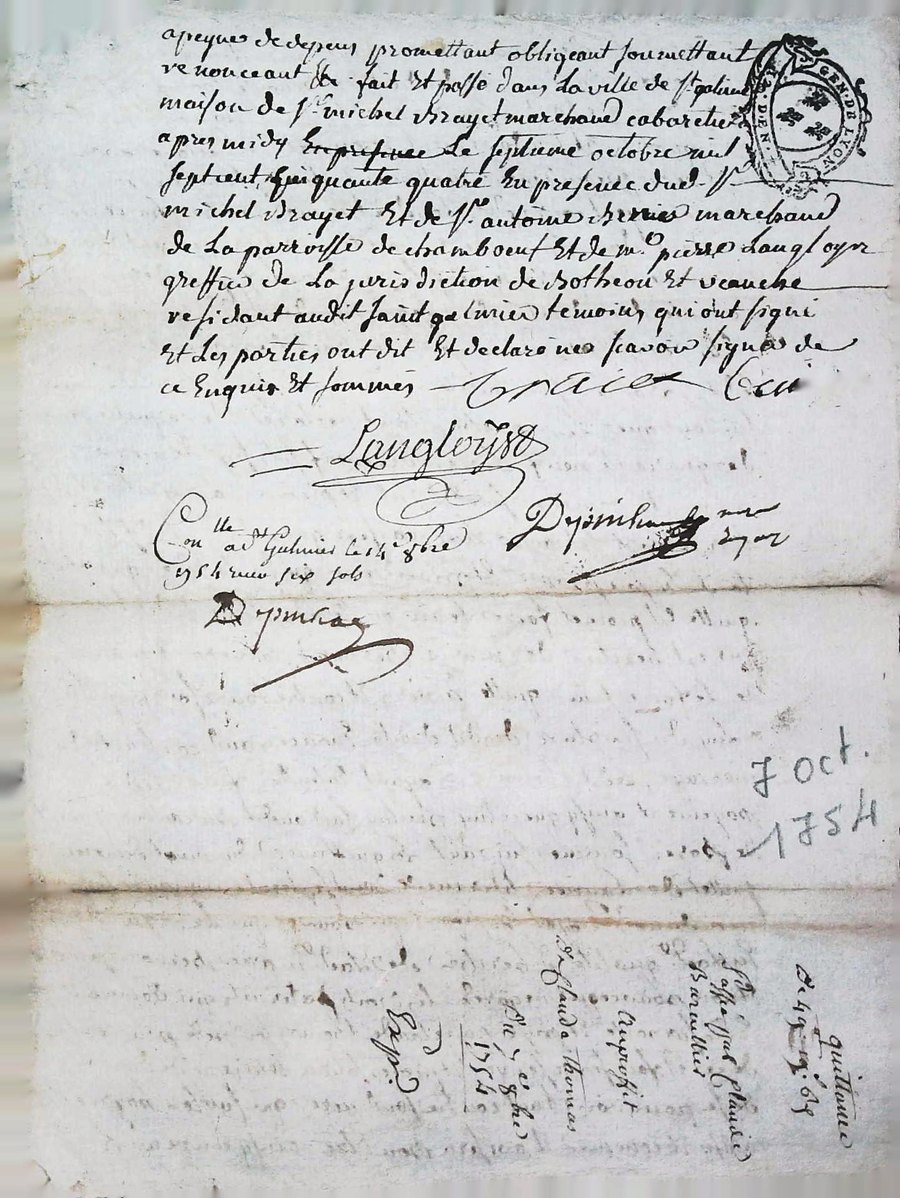 a peyne de depens promettant obligeant soumettant
renonceant &c fait et passé dans la ville de St galmier
maison de Sr michel Brayet marchand cabaretier
apres midy En presence Le septieme octobre mil
sept cent Cinquante quatre En presence dud. Sr
michel Brayet Et de Sr antoine marchand
de La parroisse de chamboeuf Et de me pierre Langloys
greffier de La jurisdiction de Botheon Et veauche
residant audit saint galmier temoins qui ont signé
Et Les parties ont dit Et declaré ne scavoir signer de
ce Enquis Et sommés
GEN. DE LYON
Langloys
Conlle a St Galmier le 14e 8bre
1754 reçu six sols
7 oct.
1754
quittance
De 49
Passée par Claude
au proffit
De Claude thomas
Du 7e 8bre
1754
Exp.